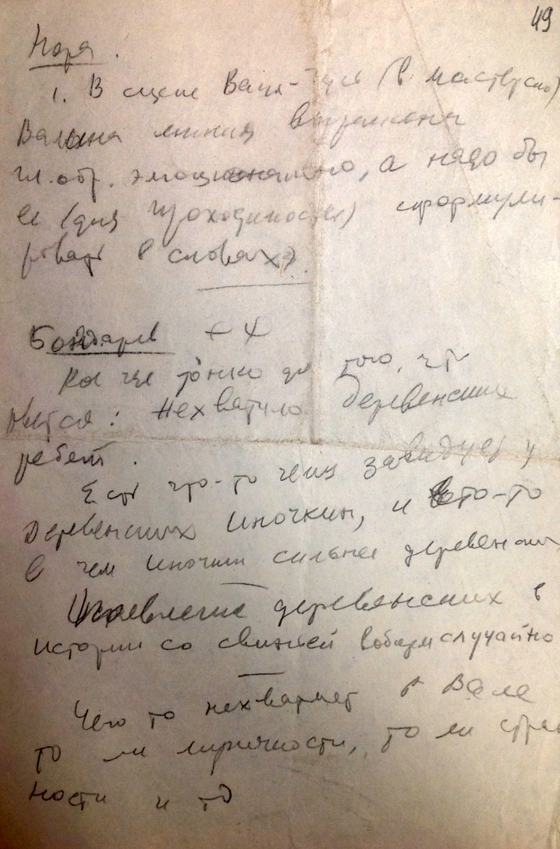 49
Норя.
1. В сцене Валя - (в мастерско)
Валина линия выражена
гл. обр. эмоционально, а надо бы
ее (для проходимости) сформули-
ровать в словах
Бондарев
Кое где тонко до того, что
рвется: Нехватило деревенских
ребят.
Есть что-то чему завидует у
деревенских Иночкин, и что-то
в чем Иночкин сильнее деревенских
деревенских в
истории со свиньей вобщем случайно
Чего то нехватает в Вале
то ли лиричности, то ли стран
ности и тд